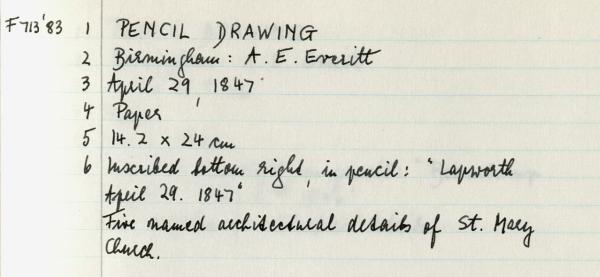 F713'83 1 PENCIL DRAWING
2 Birmingham: A. E. Everitt
3 April 29, 1847
4 Paper
5 14.2 x 24 cm
6 Inscribed bottom right, in pencil: "Lapworth
April 29. 1847"
Five named architectural details of St. Mary
Church.